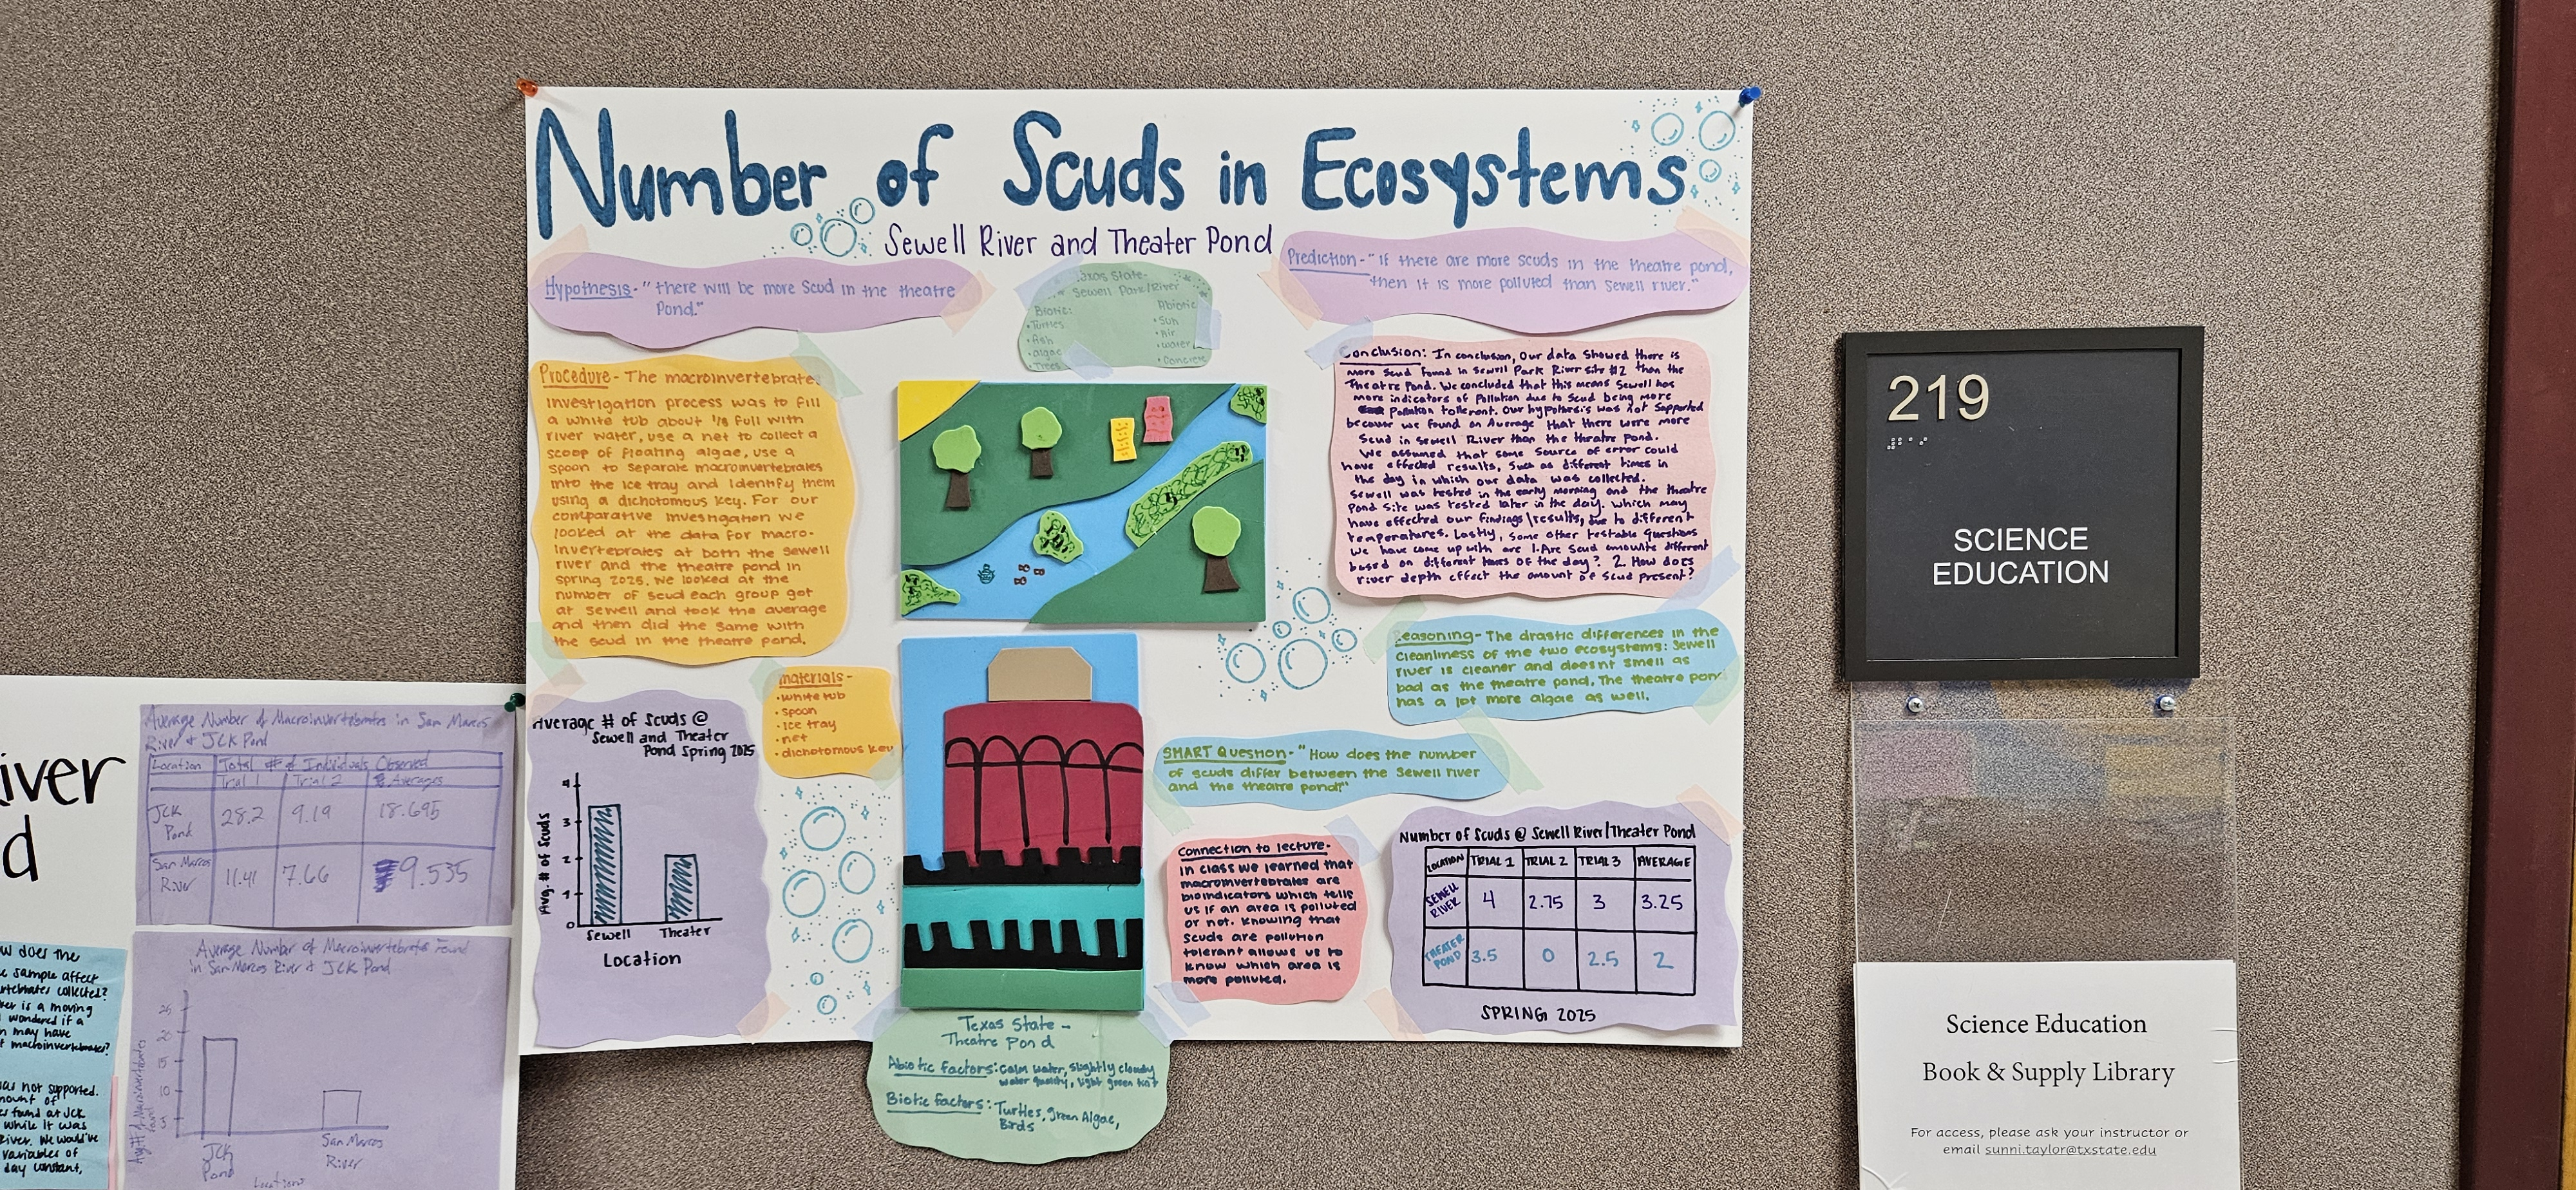 Number of Scuds in Ecosystems
Sewell River and Theater Pond
Hypothesis - "there will be more Scud in the theatre
Pond."
Texas State-
Sewell Park/River
Biotic:
• Turtles
• fish
• algae
• Trees
Abiotic
• Sun
• Air
• water
• Concrete
Prediction - "If there are more scuds in the theatre pond,
then it is more polluted than Sewell river."
Procedure - The macroinvertebrates
investigation process was to fill
a white tub about 1/8 full with
river water, use a net to collect a
scoop of floating algae, use a
spoon to separate macroinvertebrates
into the ice tray and identify them
using a dichotomous key. For our
comparative investigation we
looked at the data for macro-
invertebrates at both the sewell
river and the theatre pond in
spring 2025. We looked at the
number of scud each group got
at sewell and took the average
and then did the same with
the scud in the theatre pond.
Conclusion: In conclusion, our data showed there is
more scud found in Sewell Park River site #2 than the
Theatre Pond. We concluded that this means Sewell has
more indicators of Pollution due to Scud being more
Pollution tollerent. Our hypothesis was not supported
because we found on Average that there were more
Scud in Sewell River than the theatre pond.
We assumed that some source of error could
have effected results, such as different times in
the day in which our data was collected.
Sewell was tested in the early morning and the theatre
Pond site was tested later in the day. which may
have affected our findings/results, due to different
temperatures. Lastly, some other testable questions
we have come up with are 1. Are Scud amounts different
based on different times of the day? 2. How does
river depth effect the amount of Scud present?
Reasoning - The drastic differences in the
cleanliness of the two ecosystems: Sewell
river is cleaner and doesnt smell as
bad as the theatre pond. The theatre pond
has a lot more algae as well.
Materials -
• white tub
• spoon
• ice tray
• net
• dichotomous key
Average # of Scuds @
Sewell and Theater
Pond Spring 2025
Avg. # of Scuds
4
3
2
1
0
Sewell Theater
Location
SMART Question - "How does the number
of scuds differ between the Sewell river
and the theatre pond?"
Connection to lecture -
In class we learned that
macroinvertebrates are
bioindicators which tells
us if an area is polluted
or not. Knowing that
scuds are pollution
tolerant allows us to
know which area is
more polluted.
Number of Scuds @ Sewell River/Theater Pond
LOCATION TRIAL 1 TRIAL 2 TRIAL 3 AVERAGE
SEWELL RIVER 4 2.75 3 3.25
THEATER POND 3.5 0 2.5 2
SPRING 2025
Texas State -
Theatre Pond
Abiotic factors: Calm water, slightly cloudy
water quality, light green tint
Biotic factors: Turtles, green Algae,
Birds
iver
d
Average Number of Macroinvertebrates in San Marcos
River & JCK Pond
Location Total # of Individuals Observed
Trial 1 Trial 2 Averages
JCK Pond 28.2 9.19 18.695
San Marcos River 11.41 7.66 9.535
Average Number of Macroinvertebrates found
in San Marcos River & JCK Pond
25
20
15
10
5
JCK Pond
San Marcos River
Locations
w does the
sample affect
rtebrates collected?
er is a moving
wondered if a
n may have
macroinvertebrates?
as not supported.
mount of
es found at JCK
while it was
River. We would've
variables of
day constant,
219
SCIENCE
EDUCATION
Science Education
Book & Supply Library
For access, please ask your instructor or
email sunni.taylor@txstate.edu